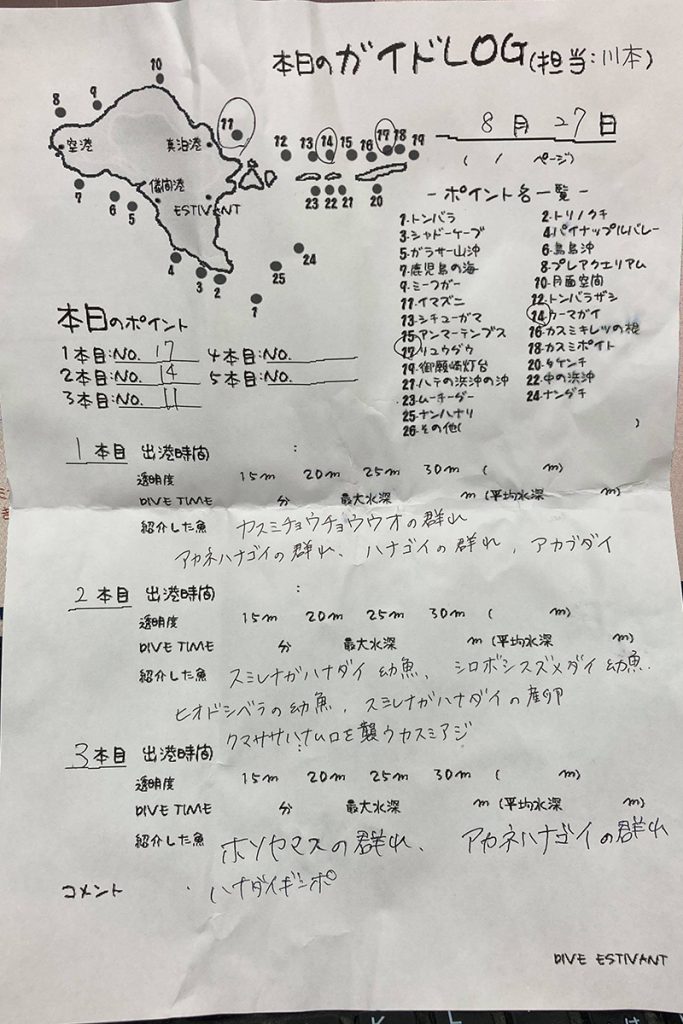 本日のガイドLOG(担当:川本)
8月27日
( / ページ)
10
8
9
11
空港
真泊港
12
13
14
15
16
17
18
19
7
6
5
儀間港
ESTIVANT
23
22
21
20
4
3
2
1
25
24
-ポイント名一覧-
1.トンバラ
2.トリノクチ
3.シャドーケーブ
4.パイナップルバレー
5.ガラサー山沖
6.鳥島沖
7.鹿児島の海
8.プレアクエリアム
9.ミーフガー
10.月面空間
11.イマズニ
12.トンバラザシ
13.シチューガマ
14.ウーマガイ
15.アンマーテンプス
16.カスミキレツの根
17.リュウグウ
18.カスミポイント
19.御願崎灯台
20.タケンチ
21.ハテの浜沖の沖
22.中の浜沖
23.ムーチーダー
24.ナンダチ
25.ナンハナリ
26.その他( )
本日のポイント
1本目:NO. 17
4本目:NO.
2本目:NO. 14
5本目:NO.
3本目:NO. 11
1本目 出港時間 :
透明度 15m 20m 25m 30m ( m)
DIVE TIME 分 最大水深 m (平均水深 m)
紹介した魚 カスミチョウチョウウオの群れ
アカネハナゴイの群れ、ハナゴイの群れ、アカブダイ
2本目 出港時間 :
透明度 15m 20m 25m 30m ( m)
DIVE TIME 分 最大水深 m (平均水深 m)
紹介した魚 スミレナガハナダイ 幼魚、シロボシスズメダイ 幼魚.
ヒオドシベラの幼魚、スミレナガハナダイの産卵
クマササハナムロを襲うカスミアジ
3本目 出港時間 :
透明度 15m 20m 25m 30m ( m)
DIVE TIME 分 最大水深 m (平均水深 m)
紹介した魚 ホソヤマスの群れ、アカネハナゴイの群れ
ハナダイギンポ
コメント
DIVE ESTIVANT